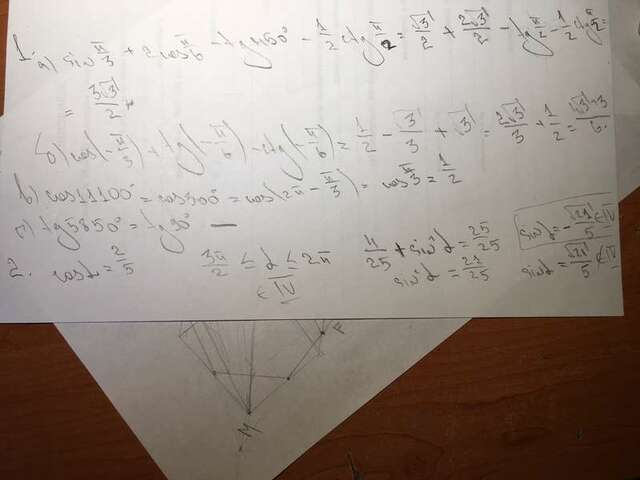 1. a) sin π/3 + 2 cos π/6 - tg 450° - 1/2 ctg π/2 = √3/2 + 2√3/2 - tg π/2 - 1/2 ctg π/2 =
= 3√3/2
б) cos(-π/3) + tg(-π/6) - ctg(-π/6) = 1/2 - √3/3 + √3 = 2√3/3 + 1/2 =
в) cos 11100° = cos 300° = cos(2π - π/3) = cos π/3 = 1/2
г) tg 5850° = tg 90° —
2. cos α = 2/5 3π/2 ≤ α ≤ 2π 4/25 + sin²α = 25/25 sin α = -√21/5 ∈ IV
∈ IV sin²α = 21/25 sin α = √21/5 ∉ IV
F
M